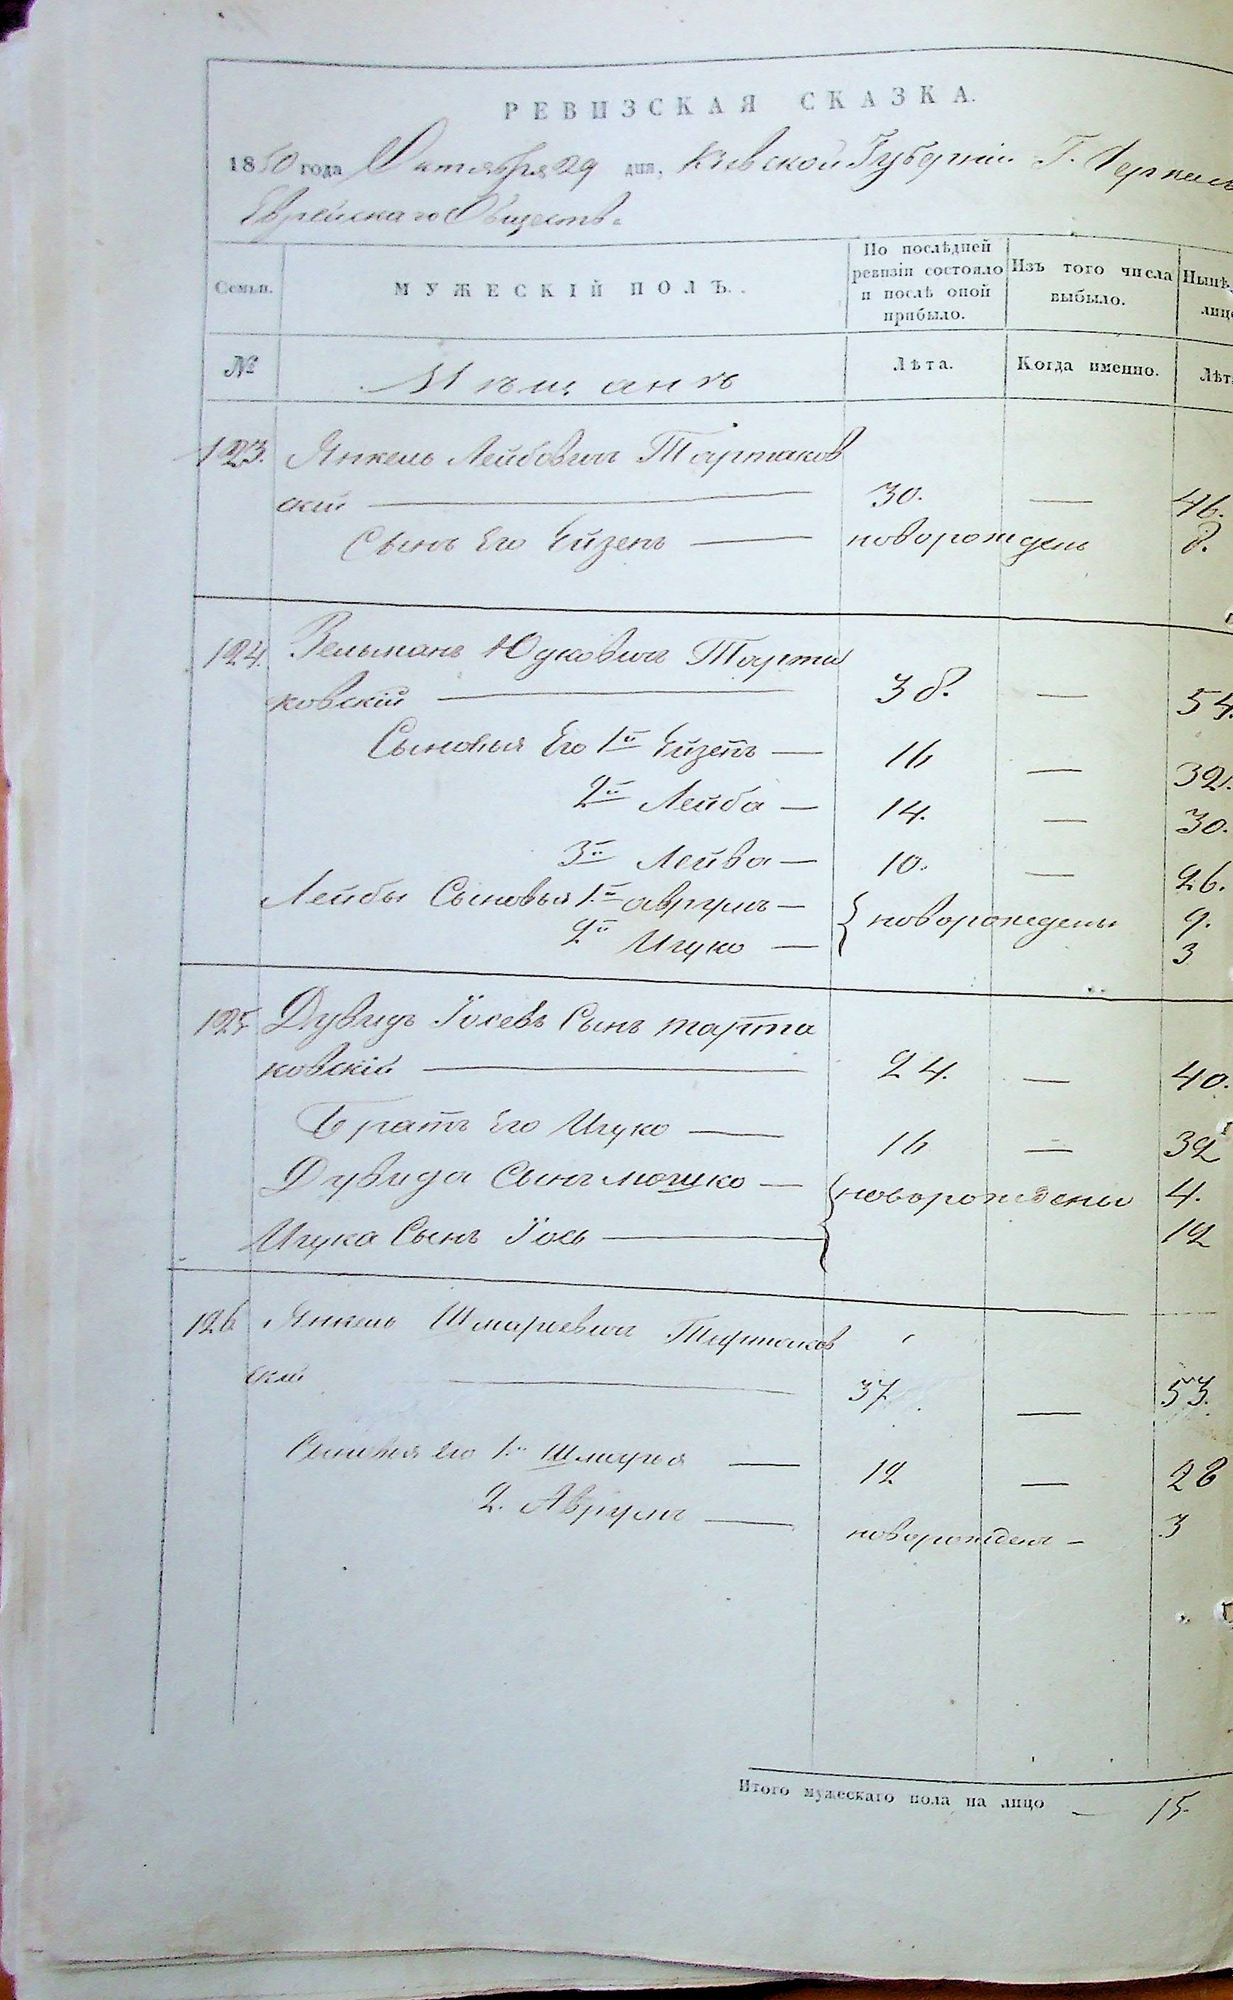 РЕВИЗСКАЯ СКАЗКА.
1850 года Октября 29 дня, Кіевской Губерніи Г.
Еврейскаго Общества
Семьи. МУЖЕСКІЙ ПОЛЪ. По послѣдней ревизіи состояло и послѣ оной прибыло. Изъ того числа выбыло. Нынѣ
№ Мѣщанъ Лѣта. Когда именно. Лѣт
123. Янкель Лейбовичъ Тартаков
скій — 30. — 46.
Сынъ Его Ейзенъ — новорожденъ 8.
124. Зельманъ Юдковичъ Тарта
ковскій — 38. — 54.
Сыновья Его 1й Ейзенъ — 16 — 32.
2й Лейба — 14. — 30.
3й — 10. — 26.
Лейбы Сыновья 1й Аврумъ — { новорождены 9.
2й Ицко — 3
125 Дувидъ Іосевъ Сынъ Тарта
ковскій — 24. — 40.
Братъ Его Ицко — 16 — 32
Дувида Сынъ Мошко — { новорождены 4.
Ицка Сынъ Іось — 12
126 Янкель Шмарьевичъ Тартаков
скій — 37 — 53.
Сыновья его 1й Шмарья — 12 — 28
2. Аврумъ — новорожденъ — 3
Итого мужескаго пола на лицо — 15